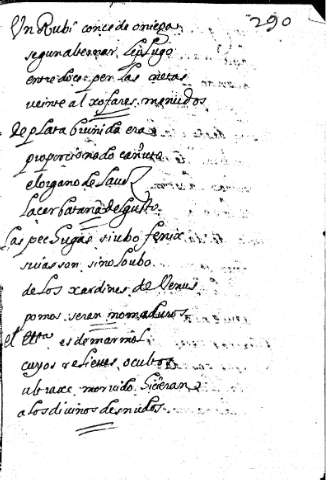 290
Un Rubi conçede o niega
segun abre mar. le plugo
entre doçe perlas netas
veinte alxofares menudos
de plata bruñida era
proporcionado cañuto
el organo de la uoz
la cerbatana del gusto
las pechugas si ubo fenix
suias son si no lo ubo
de los xardines de Venus
pomos seran no maduros
el etta es de marmol
cuyos relieues ocultos
ubraxe moruido hiçieran
a los diuinos desnudos